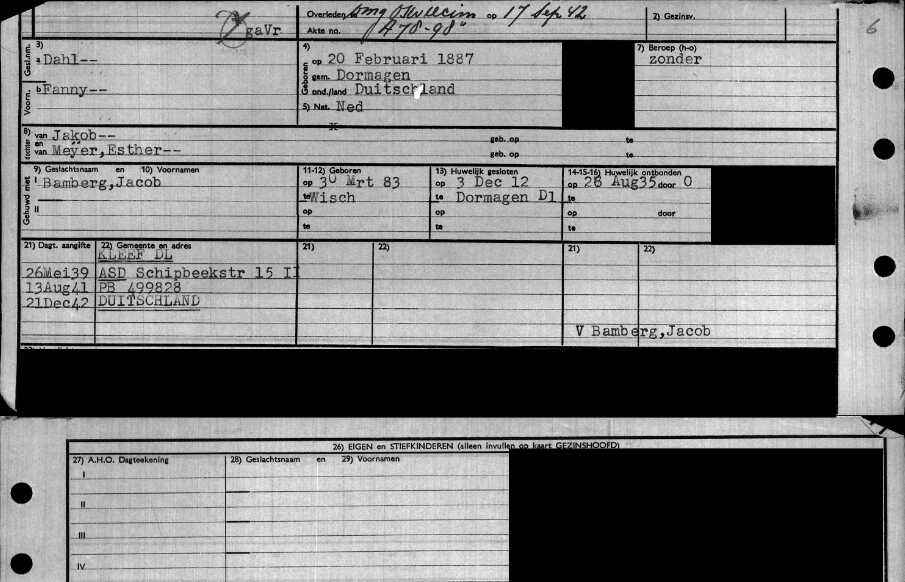 Overleden omg Oswiecim op 17 Sep 42
Akte no. A 78-98
2) Gezinsv.
6
gaVr
Gesl.nm. 3) a Dahl--
Voorn. b Fanny--
4) Geboren op 20 Februari 1887
gem. Dormagen
ond./land Duitschland
5) Nat. Ned
7) Beroep (h-o)
zonder
8) van Jakob-- geb. op te
en van Meyer,Esther-- geb. op te
Gehuwd met 9) Geslachtsnaam en 10) Voornamen
I Bamberg,Jacob
II
11-12) Geboren
op 30 Mrt 83
te Wisch
op
te
13) Huwelijk gesloten
op 3 Dec 12
te Dormagen Dl
op
te
14-15-16) Huwelijk ontbonden
op 26 Aug35 door O
te
op door
te
21) Dagt. aangifte 22) Gemeente en adres 21) 22) 21) 22)
KLEEF DL
26Mei39 ASD Schipbeekstr 15 II
13Aug41 PB 499828
21Dec42 DUITSCHLAND
V Bamberg,Jacob
26) EIGEN en STIEFKINDEREN (alleen invullen op kaart GEZINSHOOFD)
27) A.H.O. Dagteekening 28) Geslachtsnaam en 29) Voornamen
I
II
III
IV